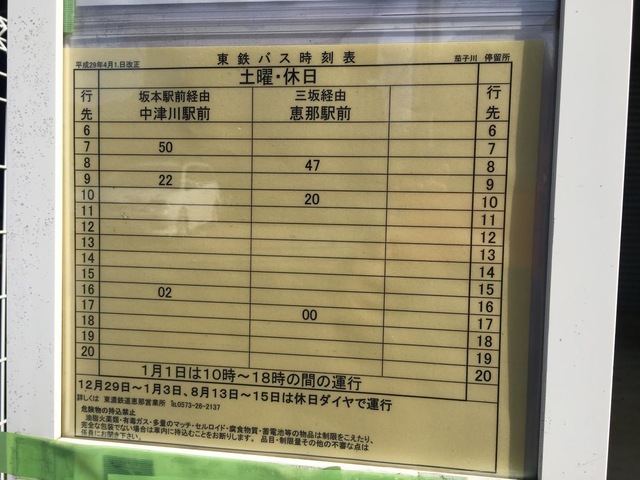 平成29年4月1.日改正 東鉄バス時刻表 茄子川 停留所
土曜・休日
行先 坂本駅前経由 中津川駅前 三坂経由 恵那駅前 行先
6 6
7 50 7
8 47 8
9 22 9
10 20 10
11 11
12 12
13 13
14 14
15 15
16 02 16
17 00 17
18 18
19 19
20 20
1月1日は10時~18時の間の運行
12月29日~1月3日、8月13日~15日は休日ダイヤで運行
詳しくは 東濃鉄道恵那営業所 ℡0573-26-2137
危険物の持込禁止
油脂火薬類・有毒ガス・多量のマッチ・セルロイド・腐食物質・蓄電池等の物品は制限をこえたり、
完全な包装でない場合は車内に持込むことをお断りします。 品目・制限量その他の不審な点は
係員にお聞き下さい。